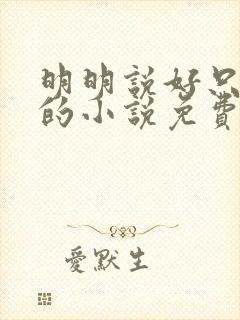 明明說好只
的小說免費
愛默生